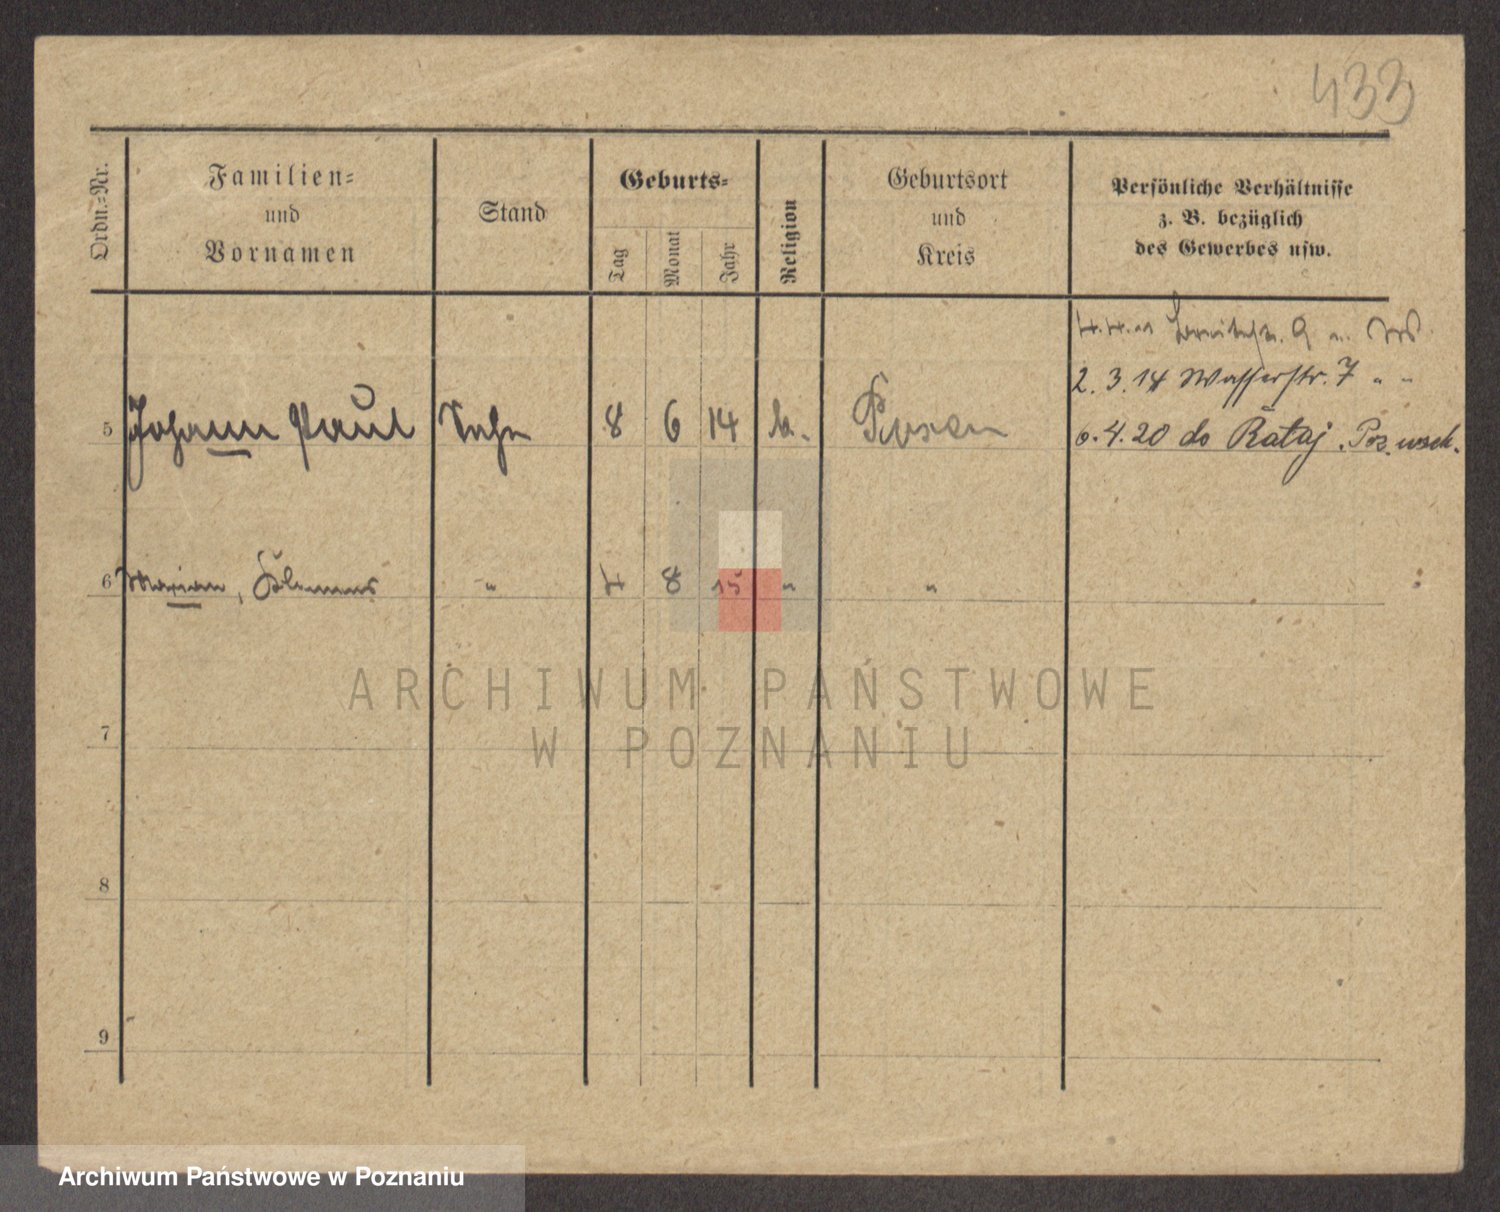 433
Ordn.-Nr.
Familien-
und
Vornamen
Stand
Geburts-
Tag
Monat
Jahr
Religion
Geburtsort
und
Kreis
Persönliche Verhältnisse
z. B. bezüglich
des Gewerbes usw.
2. 3. 14 Wasserstr. 7 " "
5 Johann Paul Sohn 8 6 14 k. Posen 6. 4. 20 do Rataj. Poz. wsch.
6 Marian, Klemens " 4 8 15 " "
7
8
9
ARCHIWUM PAŃSTWOWE
W POZNANIU
Archiwum Państwowe w Poznaniu